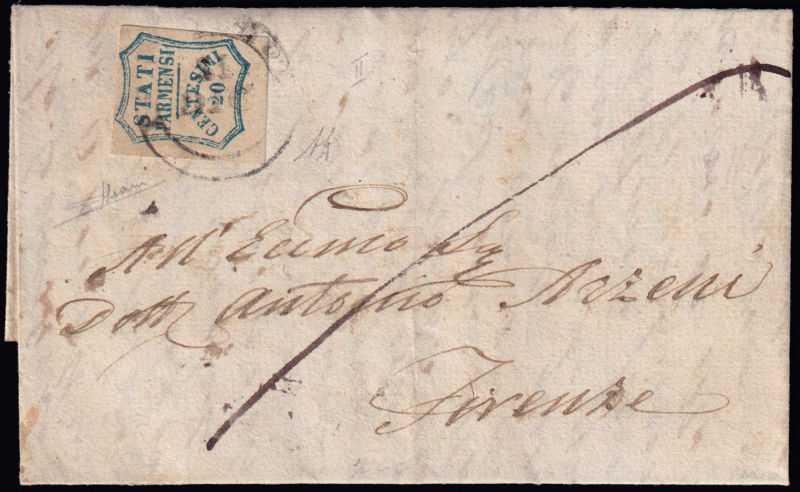 STATI
PARMENSI
CENTESIMI
20
II
All' Ecc.mo Sig
Dott Antonio Arzeni
Firenze